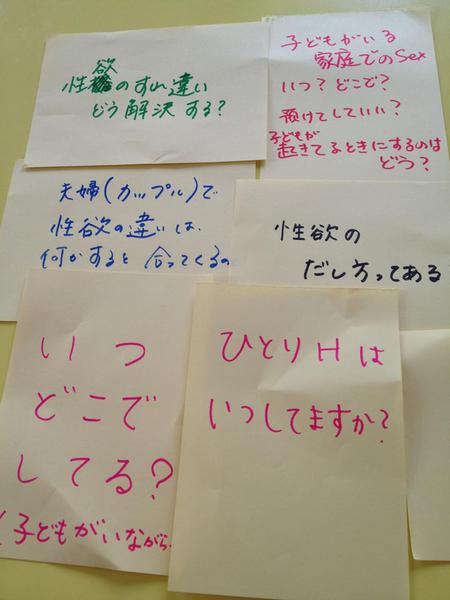 欲
性のすれ違い
どう解決する?
子どもがいる
家庭でのSex
いつ?どこで?
預けてしていい?
子どもが
起きてるときにするのは
どう?
夫婦(カップル)で
性欲の違いは、
何かすると合ってくるの
性欲の
だし方ってある
いつ
どこで
してる?
(子どもがいながら
ひとりHは
いつしてますか?